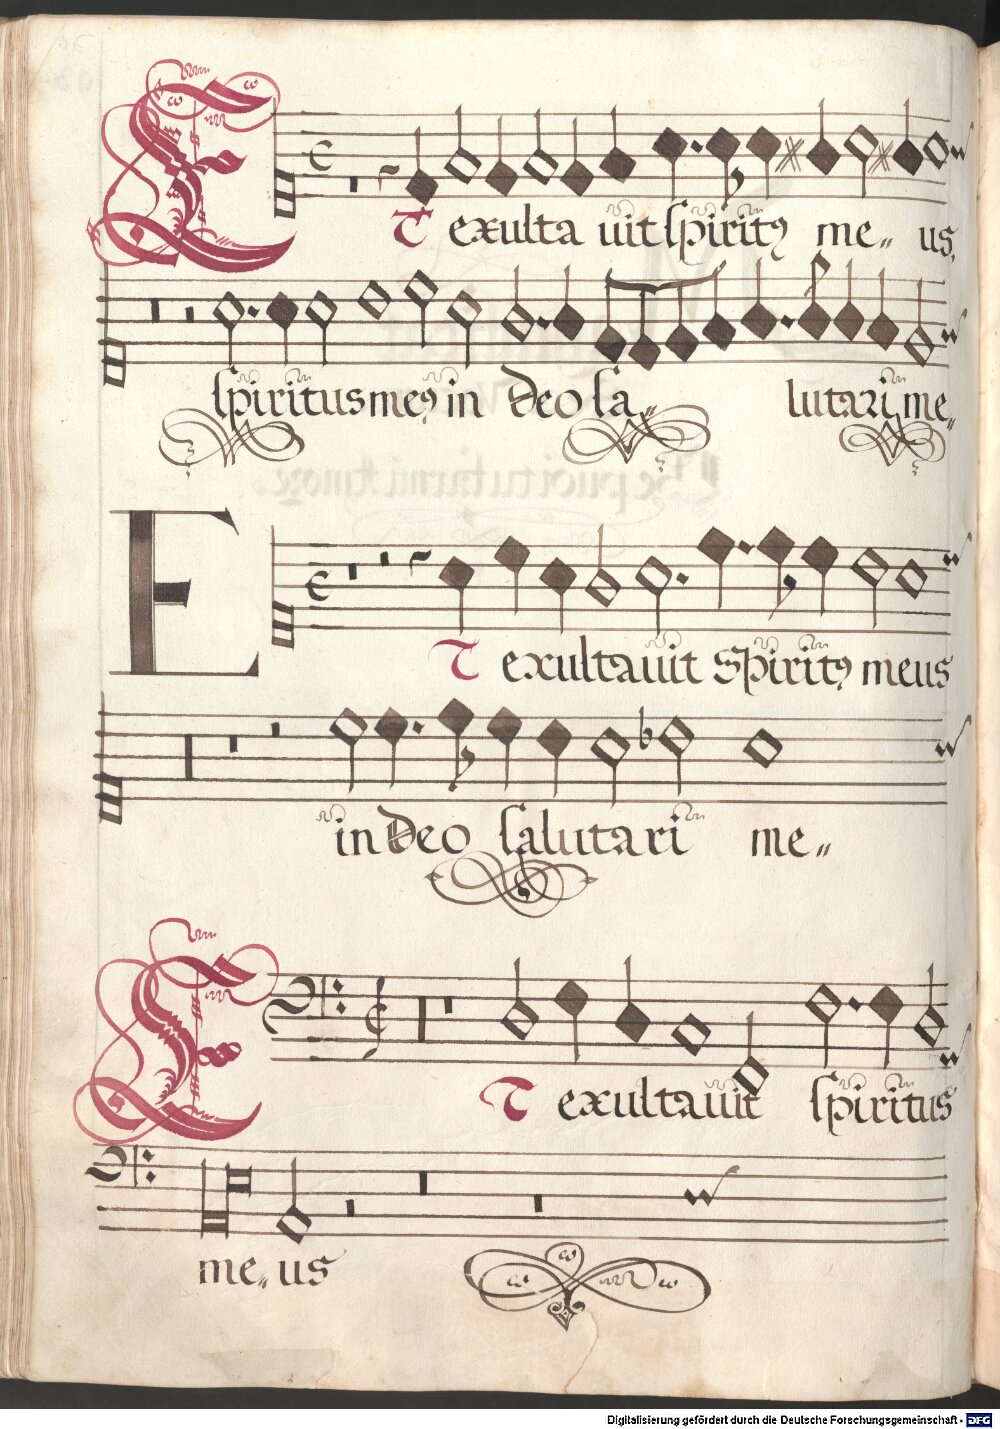 Et exultauit spiritꝰ me〃us,
spiritus meꝰ in deo sa〃lutari me〃
Et exultauit spiritꝰ meus
in deo salutari me〃
Et exultauit spiritus
me〃us
Digitalisierung gefördert durch die Deutsche Forschungsgemeinschaft - DFG